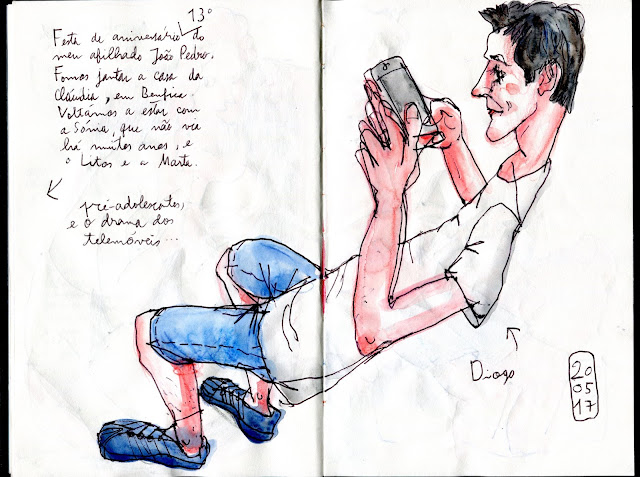 13º
Festa de aniversário do
meu afilhado João Pedro.
Fomos jantar a casa da
Cláudia, em Benfica.
Voltámos a estar com
a Sónia, que não via
há muitos anos, e
o Litos e a Marta.
pré-adolescentes,
e o drama dos
telemóveis...
Diogo
20
05
17